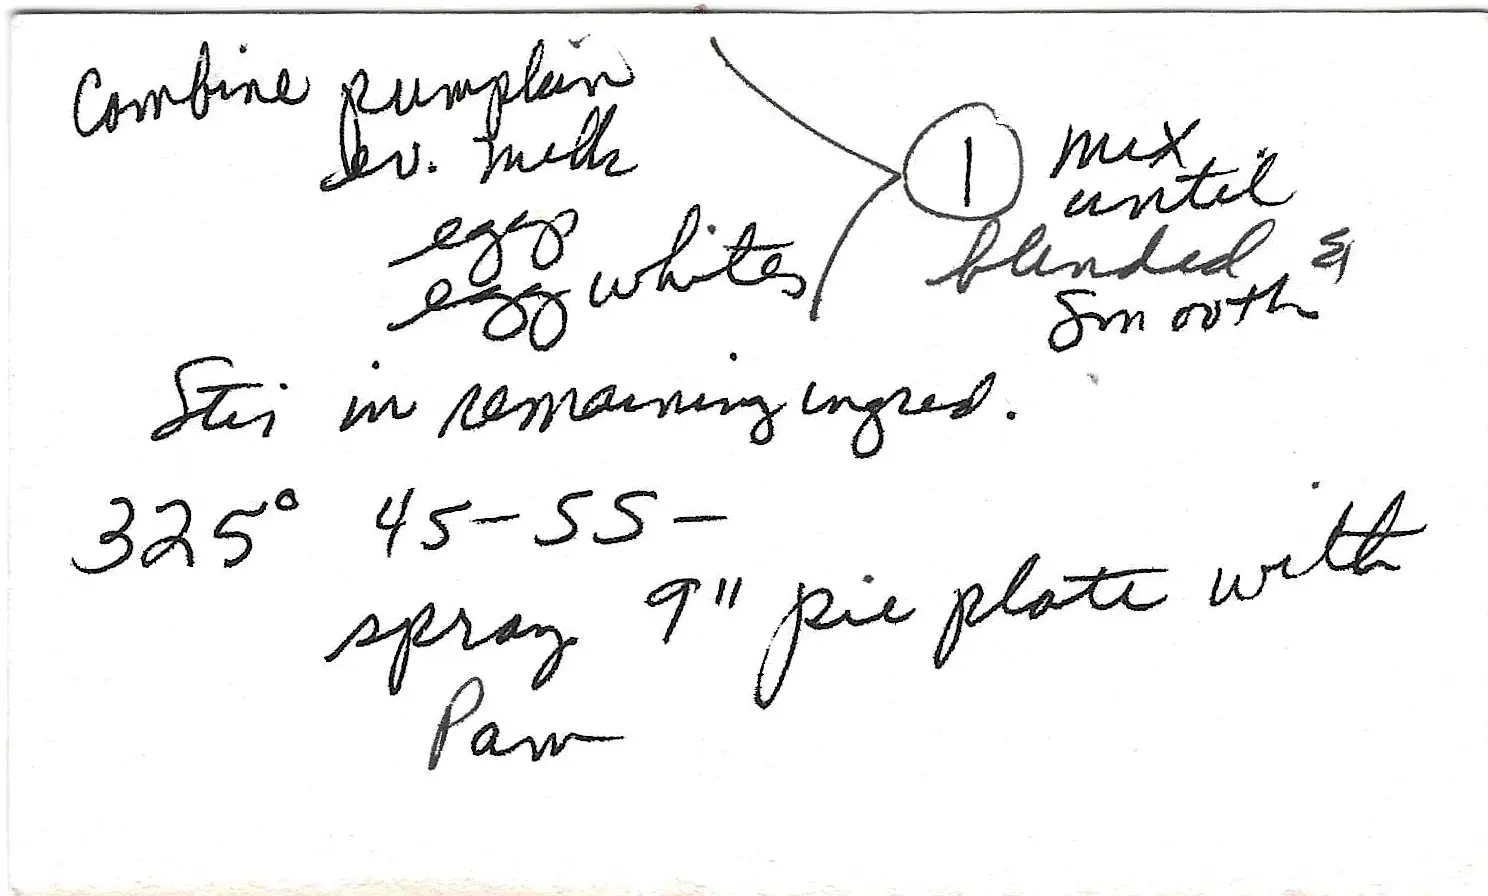 Combine pumpkin
ev. milk
eggs
egg whites
① mix
until
blended &
smooth
Stir in remaining ingred.
325° 45-55-
spray 9" pie plate with
Pam